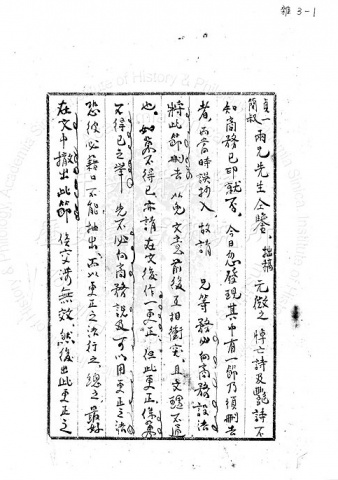 雜 3-1
貞一
簡叔 兩兄先生全鑒。拙稿元微之悼亡詩及艷詩不
知商務已印就否。今日忽發現其中有一節乃須刪去
者，而當時誤抄入，故請 兄等務必向商務設法
將此節刪去，以免文章前後互相衝突，且文理不通
也。如萬不得已，亦請在文後作一更正，但此更正係萬
不得已之舉，先不必向商務說及可以用更正之法，
恐彼必藉口不能抽出，而以更正之法行之。總之，最好
在文中撤出此節，使交涉無效，然後出此更正之